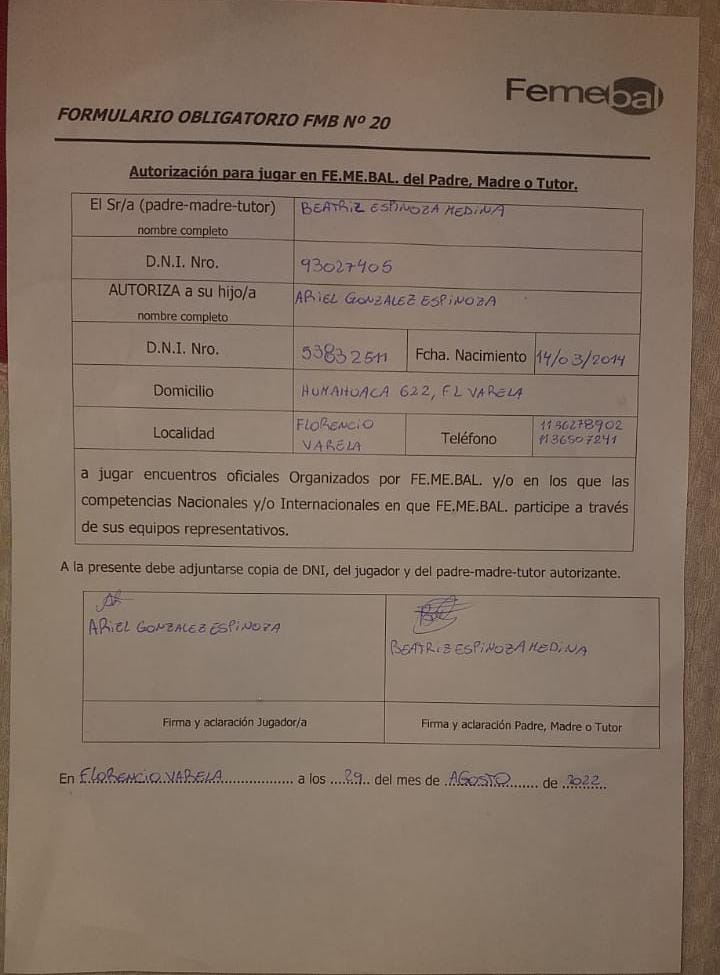 Femebal
FORMULARIO OBLIGATORIO FMB Nº 20
Autorización para jugar en FE.ME.BAL. del Padre, Madre o Tutor.
El Sr/a (padre-madre-tutor) BEATRIZ ESPINOZA MEDINA
nombre completo
D.N.I. Nro. 93027405
AUTORIZA a su hijo/a ARIEL GONZALEZ ESPINOZA
nombre completo
D.N.I. Nro. 53832511 Fcha. Nacimiento 14/03/2014
Domicilio HUMAHUACA 622, FL VARELA
Localidad FLORENCIO VARELA Teléfono 1136278902
1136507241
a jugar encuentros oficiales Organizados por FE.ME.BAL. y/o en los que las
competencias Nacionales y/o Internacionales en que FE.ME.BAL. participe a través
de sus equipos representativos.
A la presente debe adjuntarse copia de DNI, del jugador y del padre-madre-tutor autorizante.
ARIEL GONZALEZ ESPINOZA
BEATRIZ ESPINOZA MEDINA
Firma y aclaración Jugador/a
Firma y aclaración Padre, Madre o Tutor
En FLORENCIO VARELA a los 29 del mes de AGOSTO de 2022